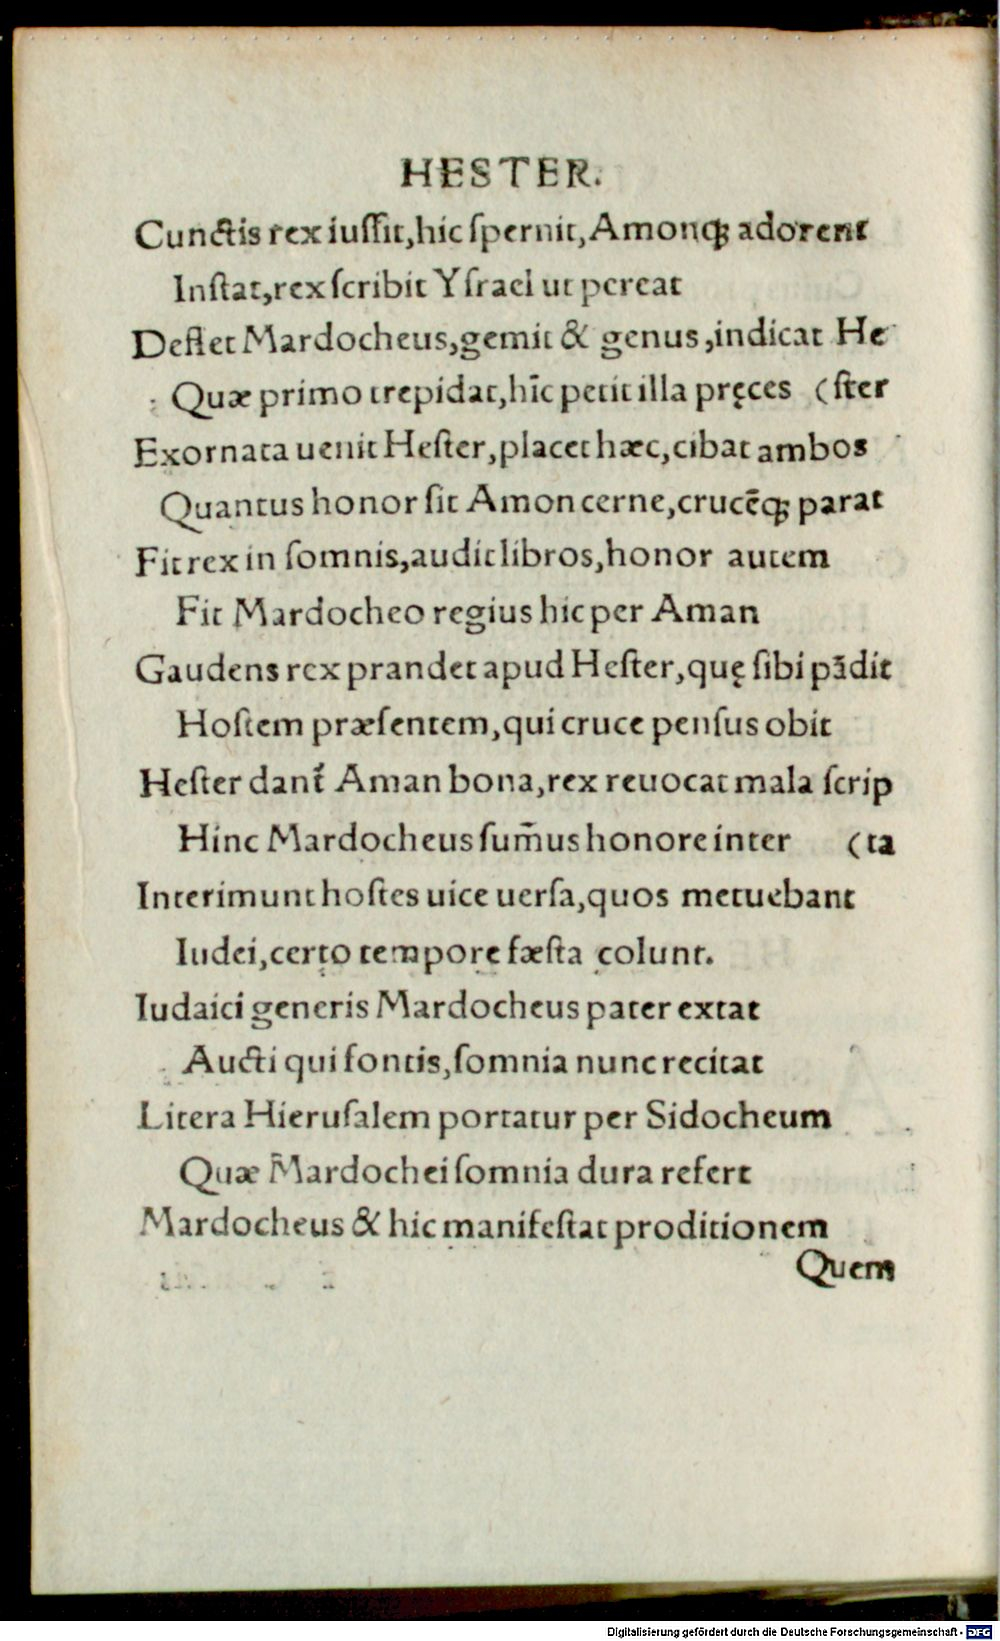 HESTER.
Cunctis rex iuſſit,hic ſpernit,Amonqꝫ adorent
Inſtat,rex ſcribit Yſrael ut pereat
Deflet Mardocheus,gemit & genus,indicat He
Quæ primo trepidat,hīc petit illa pręces (ſter
Exornata uenit Heſter,placet hæc,cibat ambos
Quantus honor ſit Amon cerne,crucēqꝫ parat
Fit rex in ſomnis,audit libros,honor autem
Fit Mardocheo regius hic per Aman
Gaudens rex prandet apud Heſter,quę ſibi pādit
Hoſtem præſentem,qui cruce penſus obit
Heſter dant̄ Aman bona,rex reuocat mala ſcrip
Hinc Mardocheus ſum̄us honore inter (ta
Interimunt hoſtes uice uerſa,quos metuebant
Iudei,certo tempore fæſta colunt.
Iudaici generis Mardocheus pater extat
Aucti qui fontis,ſomnia nunc recitat
Litera Hieruſalem portatur per Sidocheum
Quæ Mardochei ſomnia dura refert
Mardocheus & hic manifeſtat proditionem
Quem
Digitalisierung gefördert durch die Deutsche Forschungsgemeinschaft - DFG